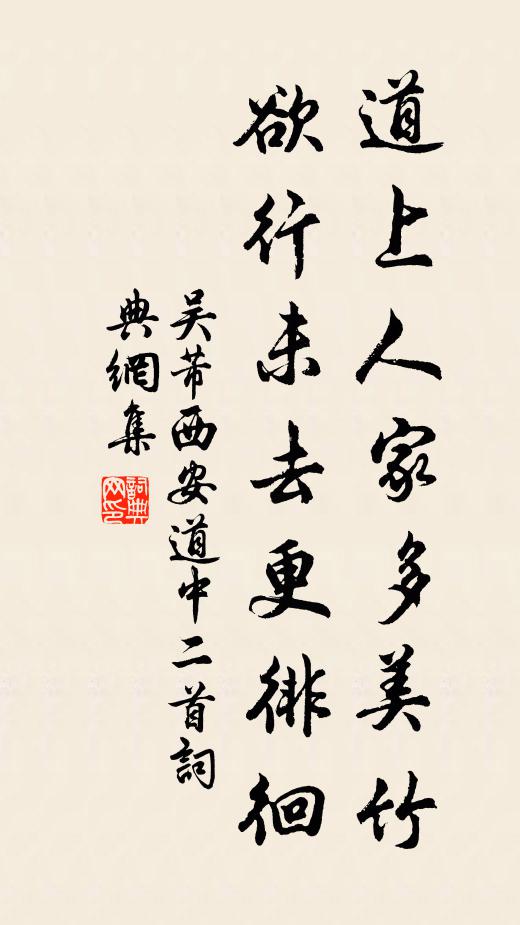 道上人家多美竹
欲行未去更徘徊
吴芾西安道中二首詞
典網集
詞典
网印